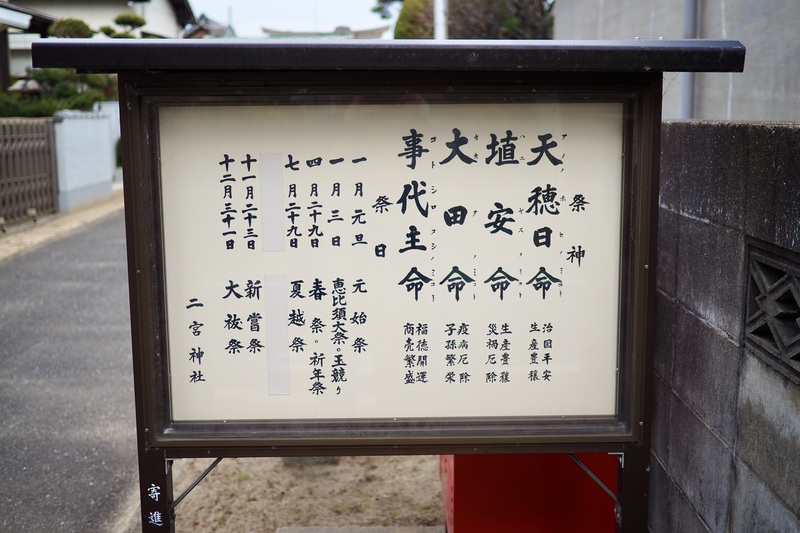 祭神
天穂日命 治国平安
生産豊穣
埴安命 生産豊穣
災禍厄除
大田命 疫病厄除
子孫繁栄
事代主命 福徳開運
商売繁盛
祭日
一月元旦 元始祭
一月三日 恵比須大祭。玉競り
四月二十九日 春祭。祈年祭
七月二十九日 夏越祭
十一月二十三日 新嘗祭
十二月三十一日 大祓祭
二宮神社
寄進